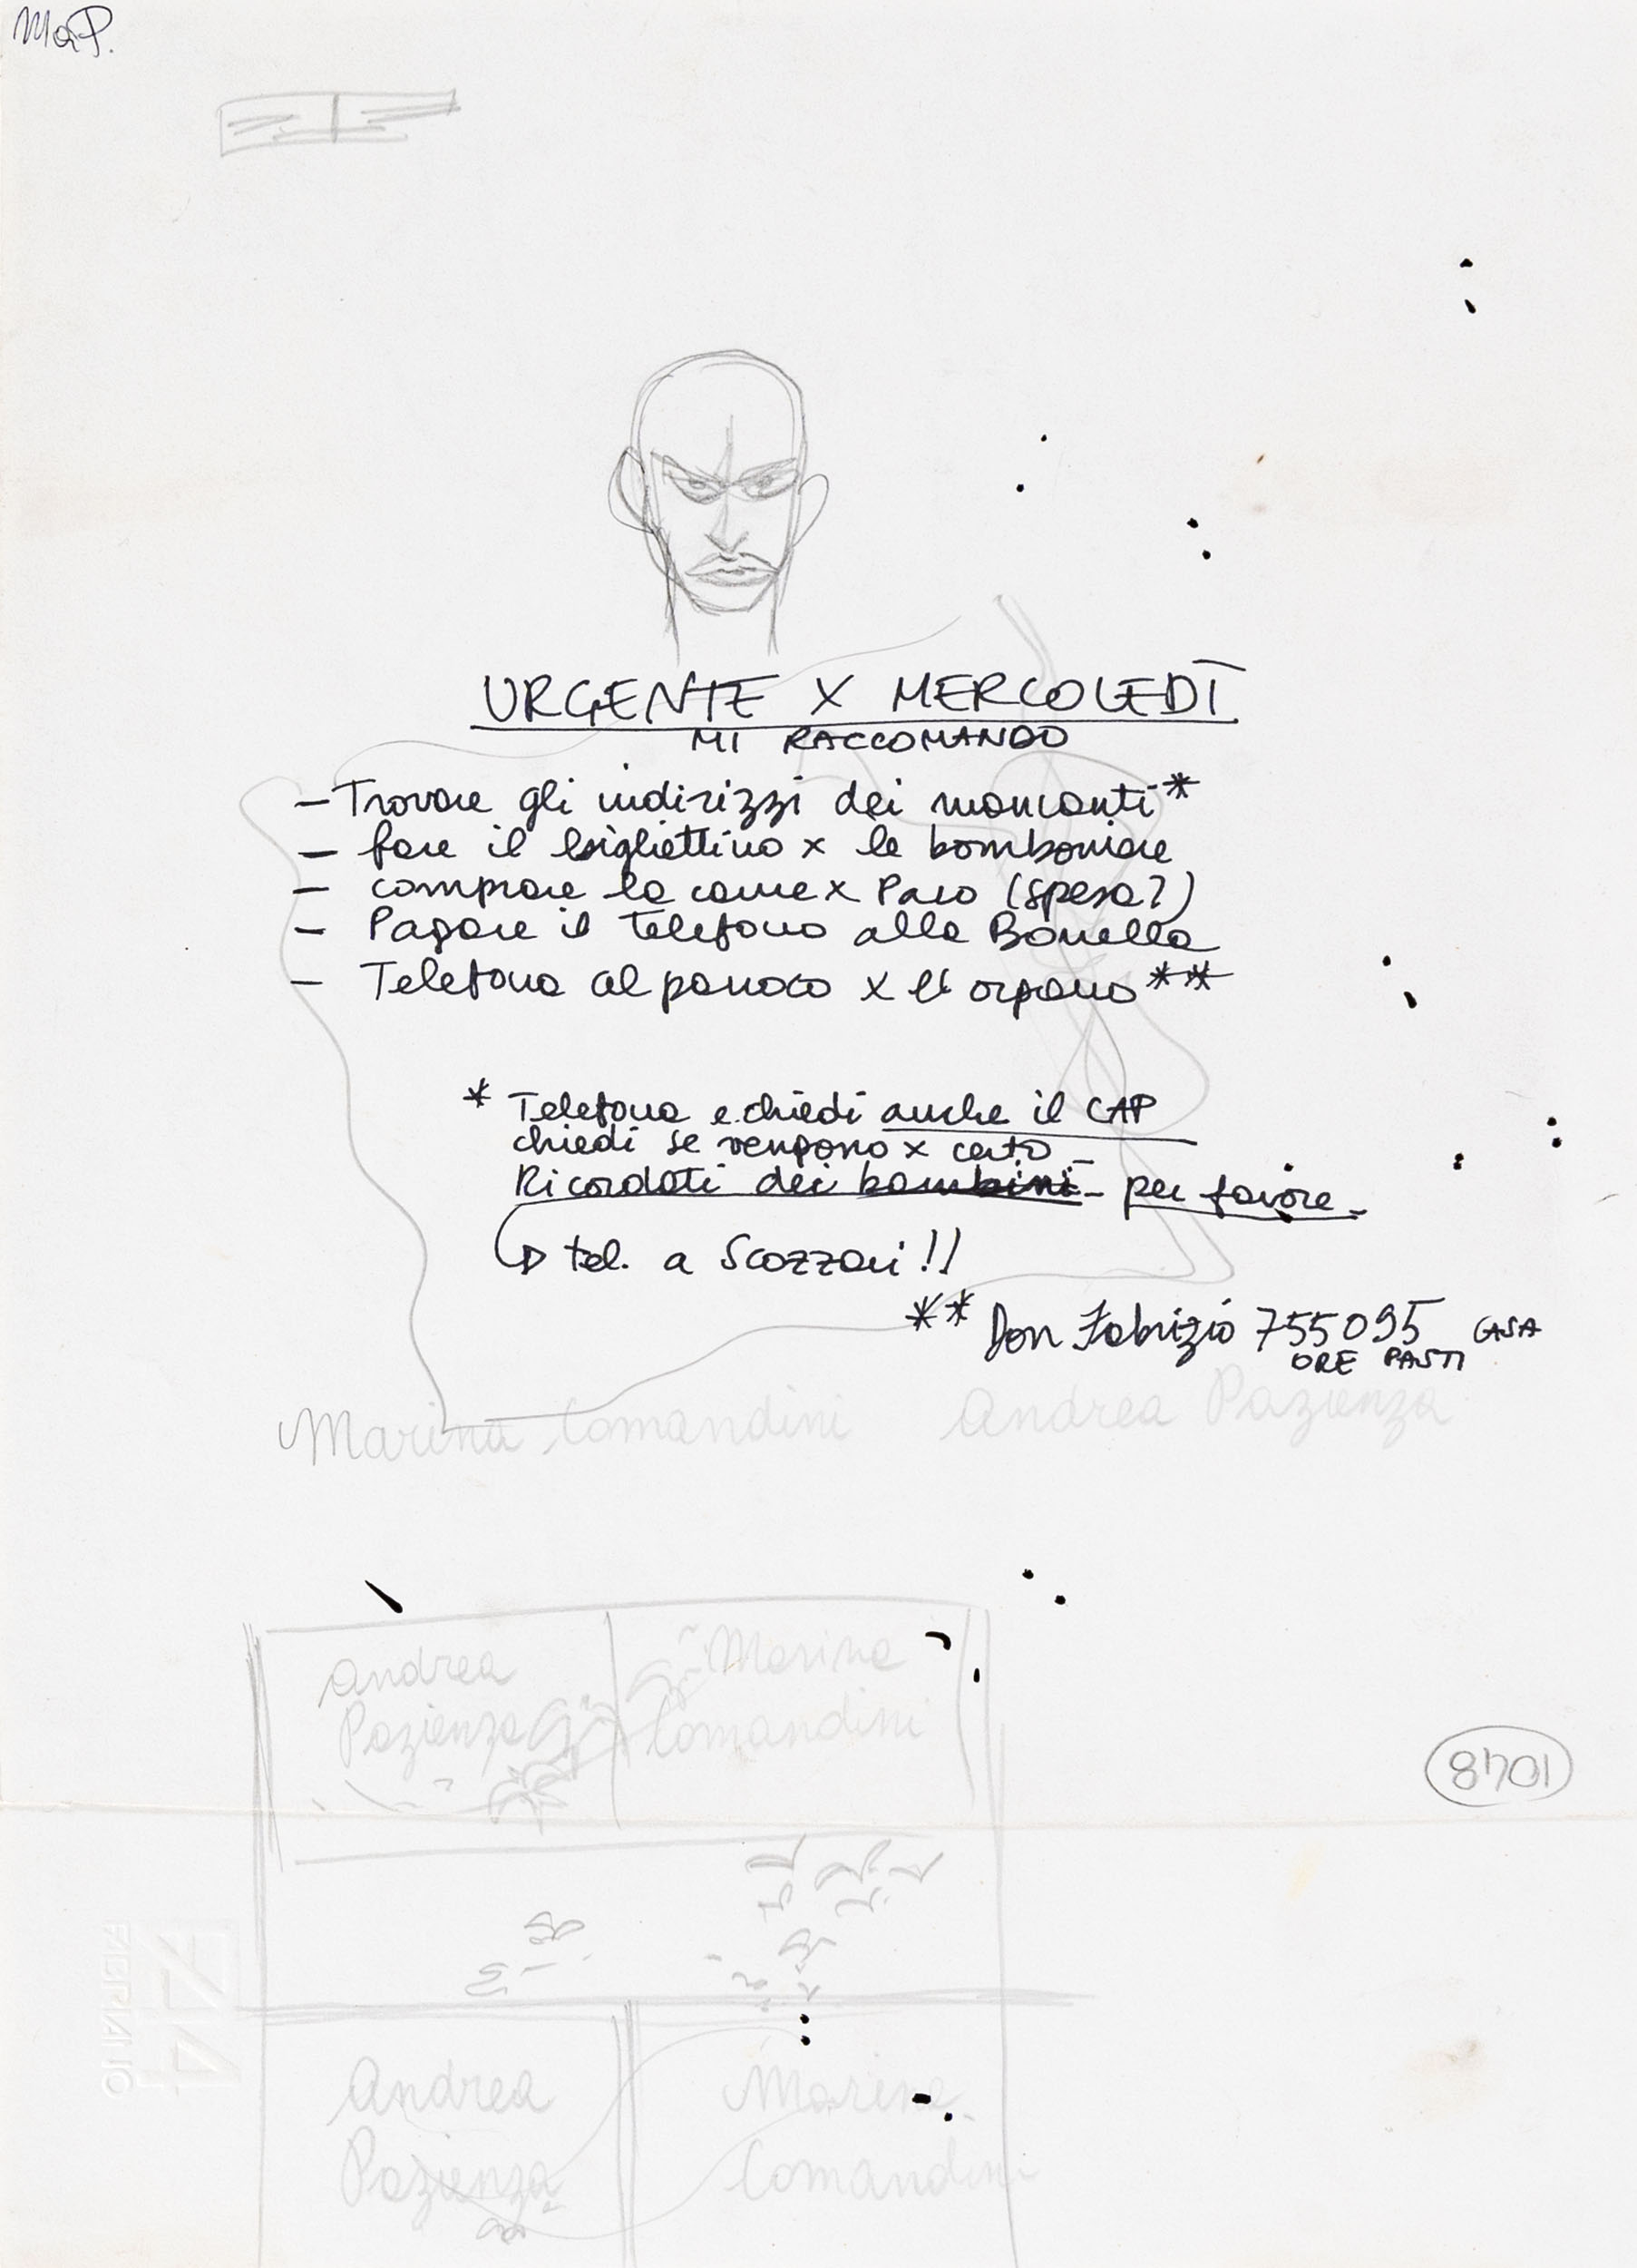 MaP.
URGENTE X MERCOLEDÌ
MI RACCOMANDO
- Trovare gli indirizzi dei mancanti*
- fare il bigliettino x le bomboniere
- comprare la carne x Paco (spesa?)
- Pagare il telefono alla Bonella
- Telefona al parroco x l'organo**
* Telefona e chiedi anche il CAP
chiedi se vengono x certo -
Ricordati dei bambini - per favore -
tel. a Scozzari!!
** Don Fabrizio 755095 CASA
ORE PASTI
Marina Comandini Andrea Pazienza
Andrea Marina
Pazienza Comandini
1048
FABRIANO
Andrea Marina
Pazienza Comandini